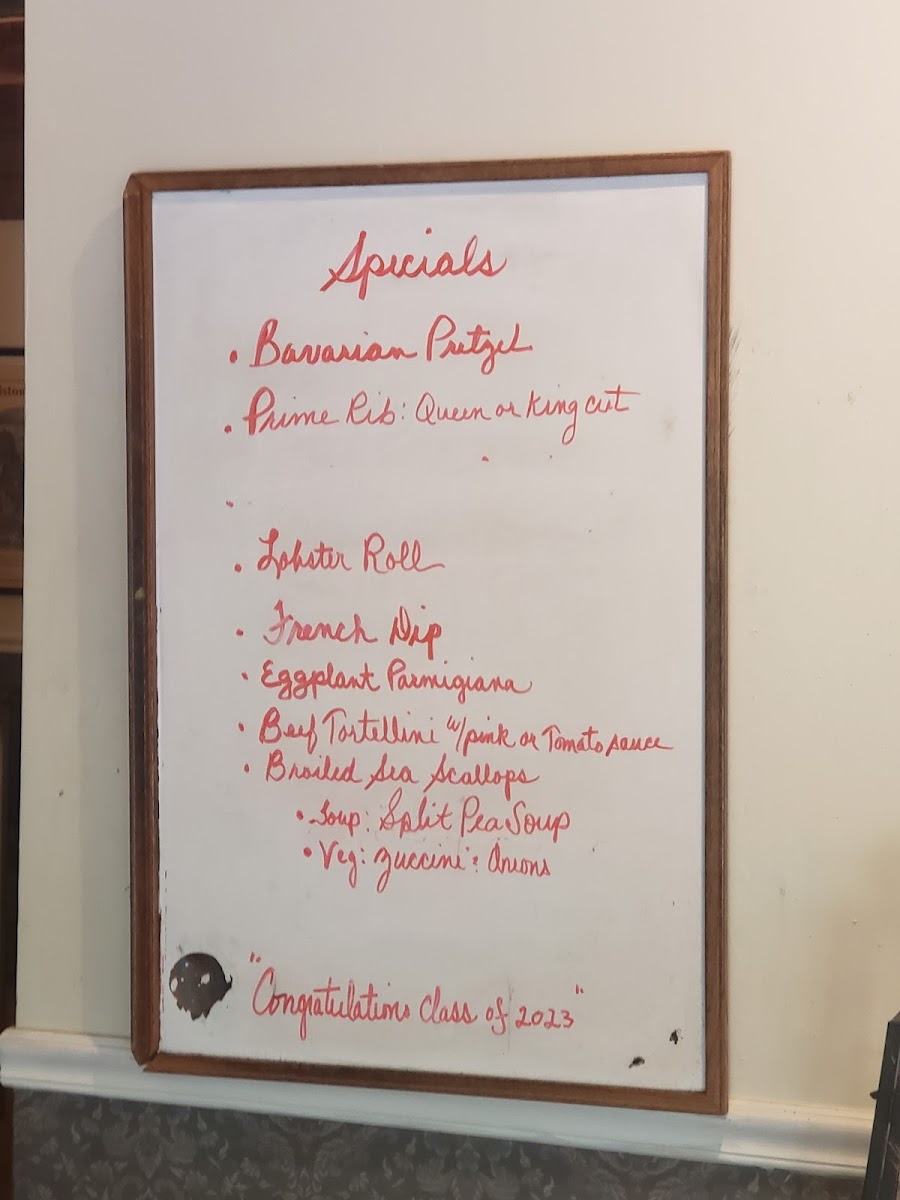 Specials
• Bavarian Pretzel
• Prime Rib: Queen or King cut
• Lobster Roll
• French Dip
• Eggplant Parmigiana
• Beef Tortellini w/pink or Tomato sauce
• Broiled Sea Scallops
• Soup: Split Pea Soup
• Veg: Zuccini & Onions
"Congratulations Class of 2023"